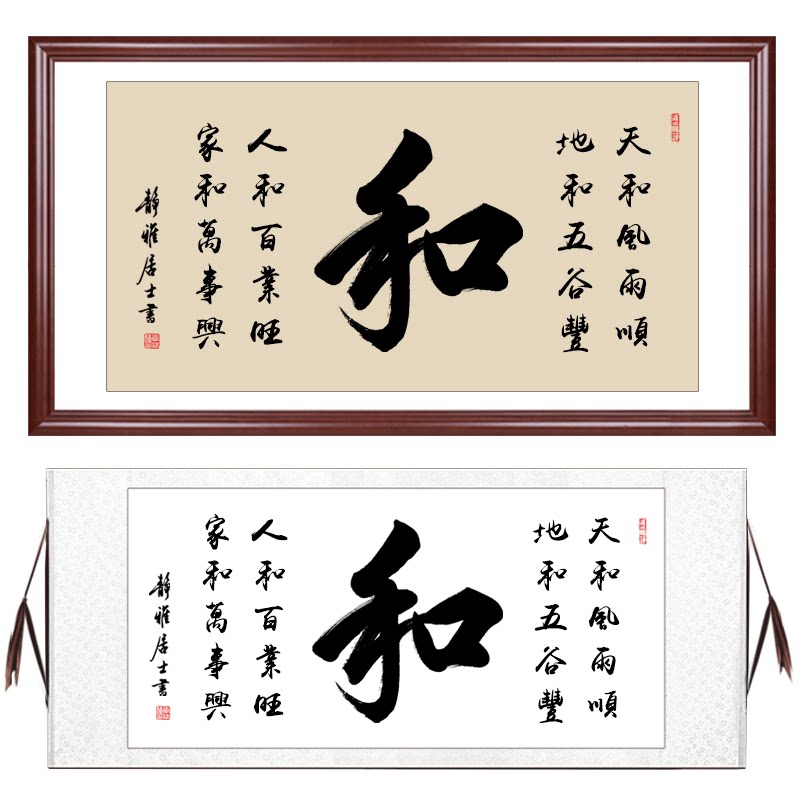 天和風雨順
地和五谷豐
和
人和百業旺
家和萬事興
靜雅居士書
天和風雨順
地和五谷豐
和
人和百業旺
家和萬事興
靜雅居士書